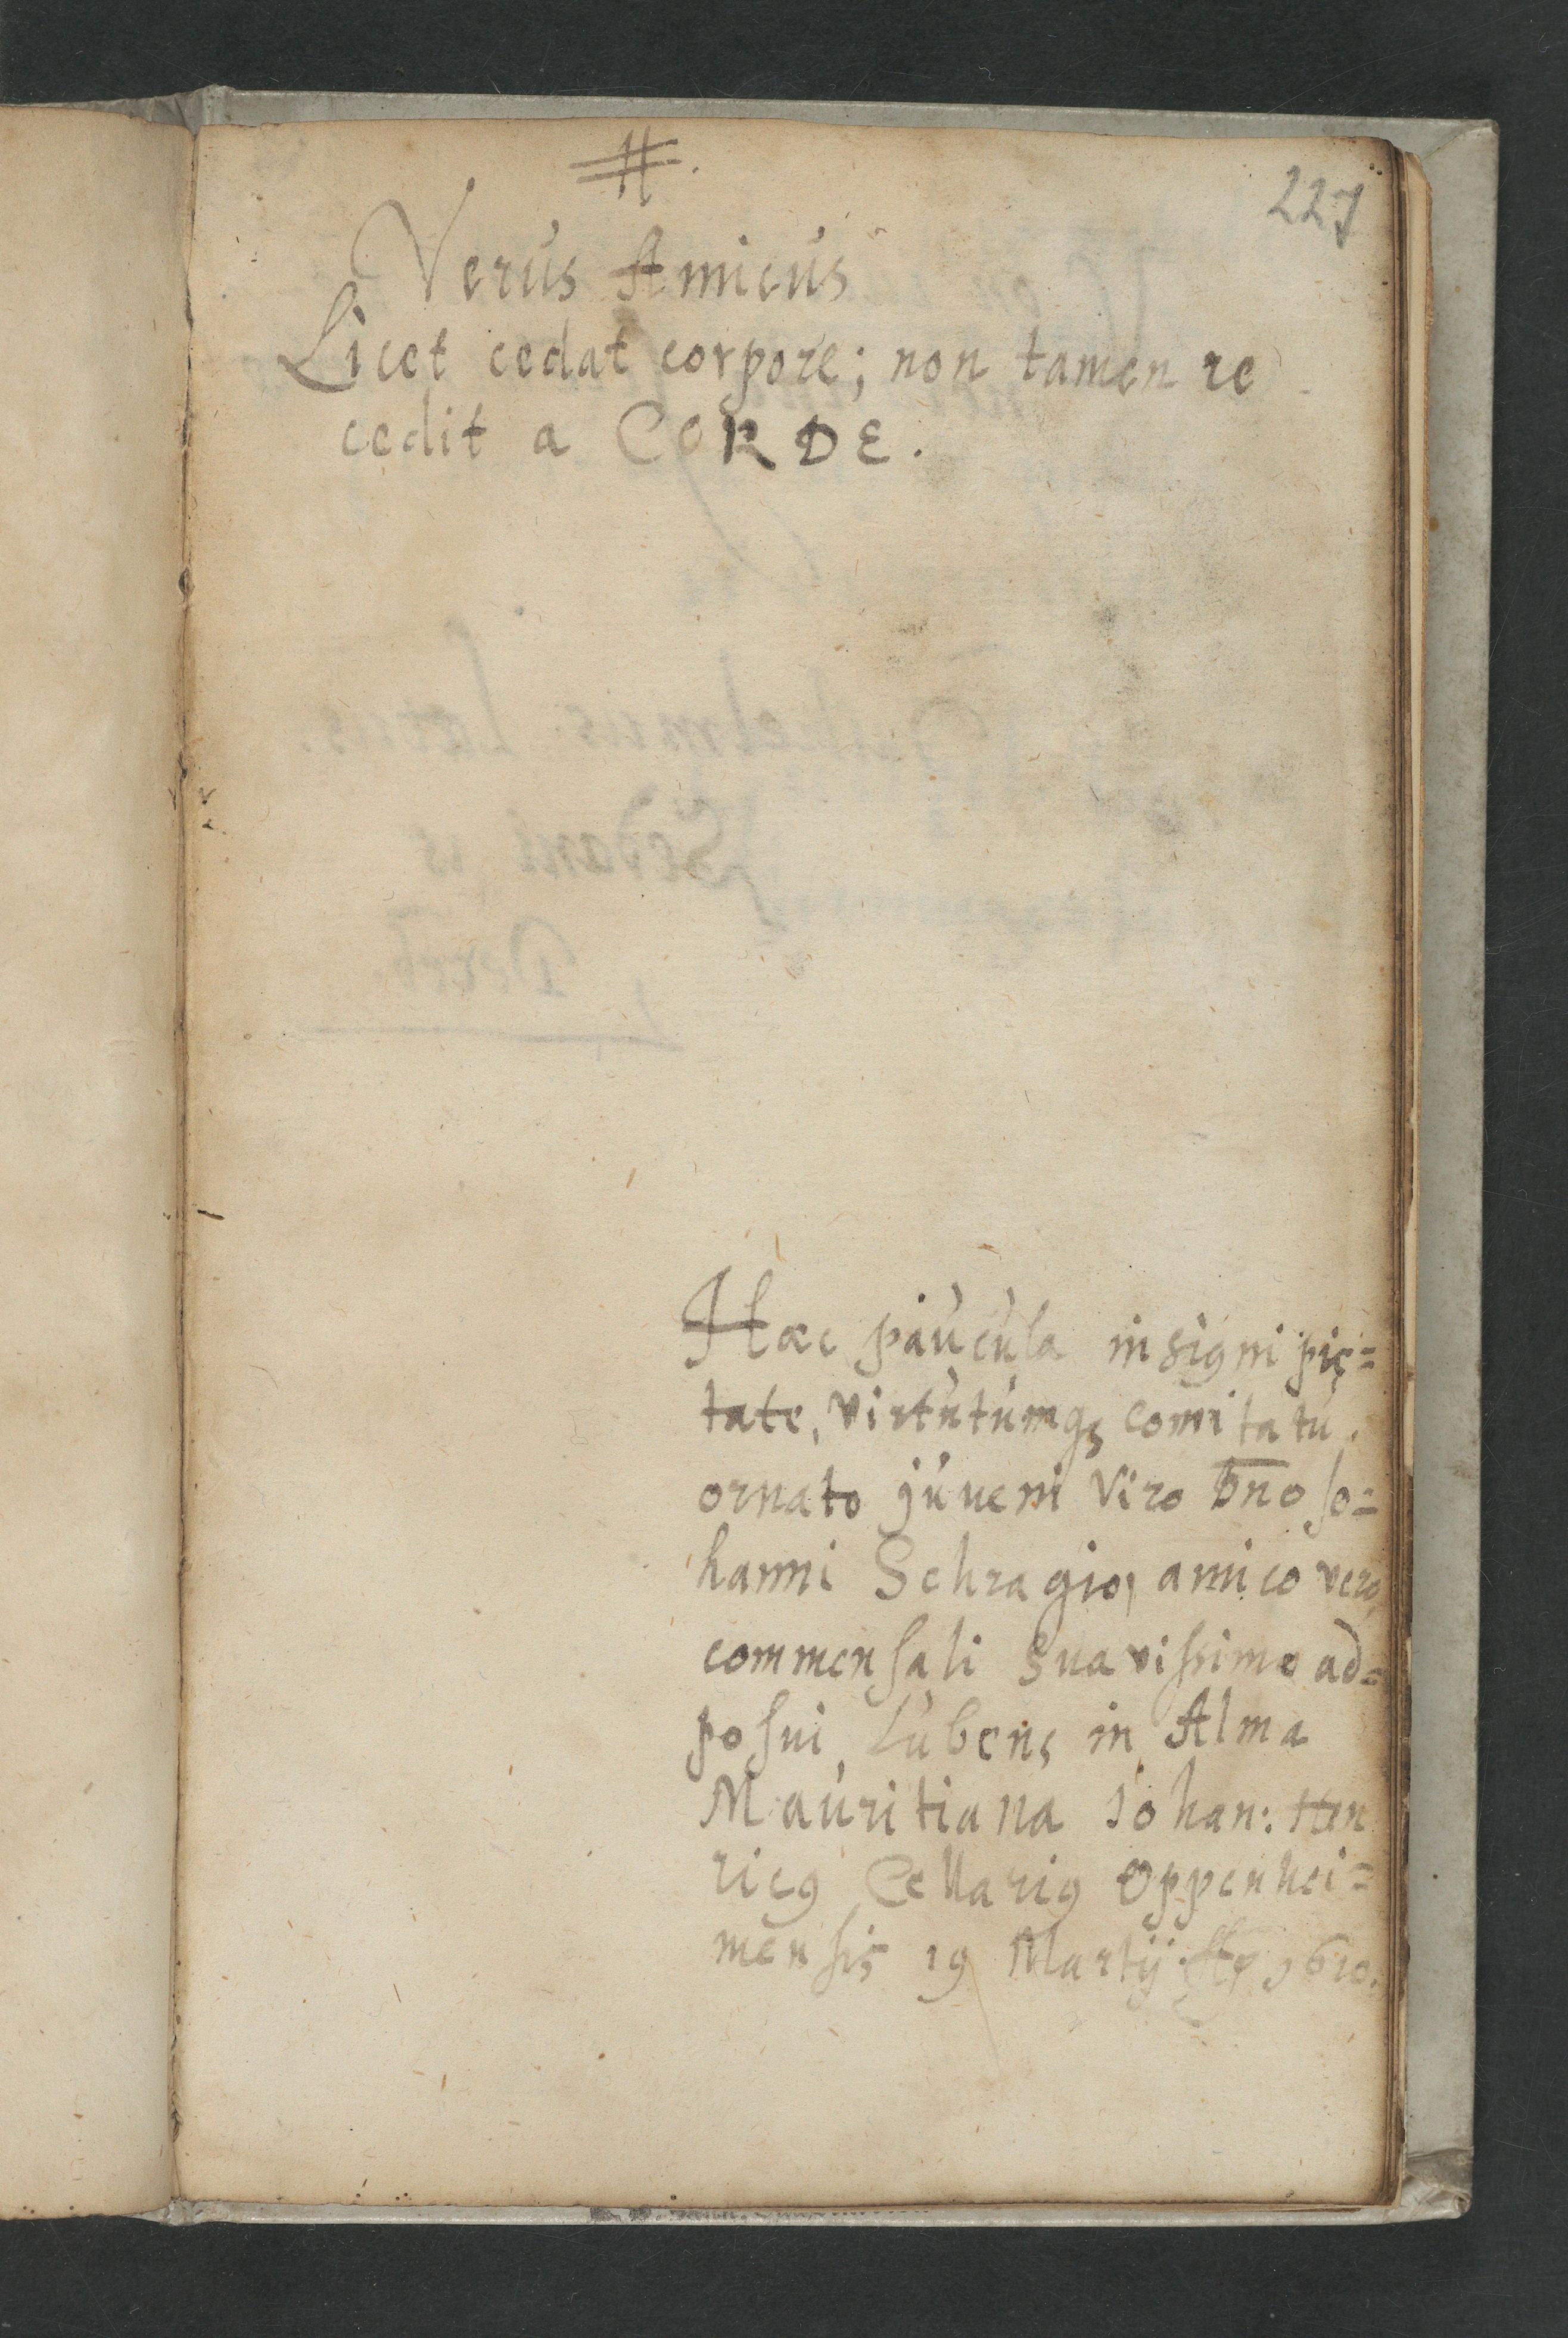 #.
227
Verús Amicús
Licet cedat corpore; non tamen re
cedit a CORDE.
Hæc paúcúla insigni pie=
tate, virtútúmqꝫ comitatú
ornato júveni Viro Dn̅o Jo=
hanni Schragio, amico vero,
commenſali suaviſsimo ad=
poſui Lúbens in Alma
Maúritiana Johan: Hen
ricꝰ Cellariꝰ Oppenhei=
menſis 19 Martij 1610.